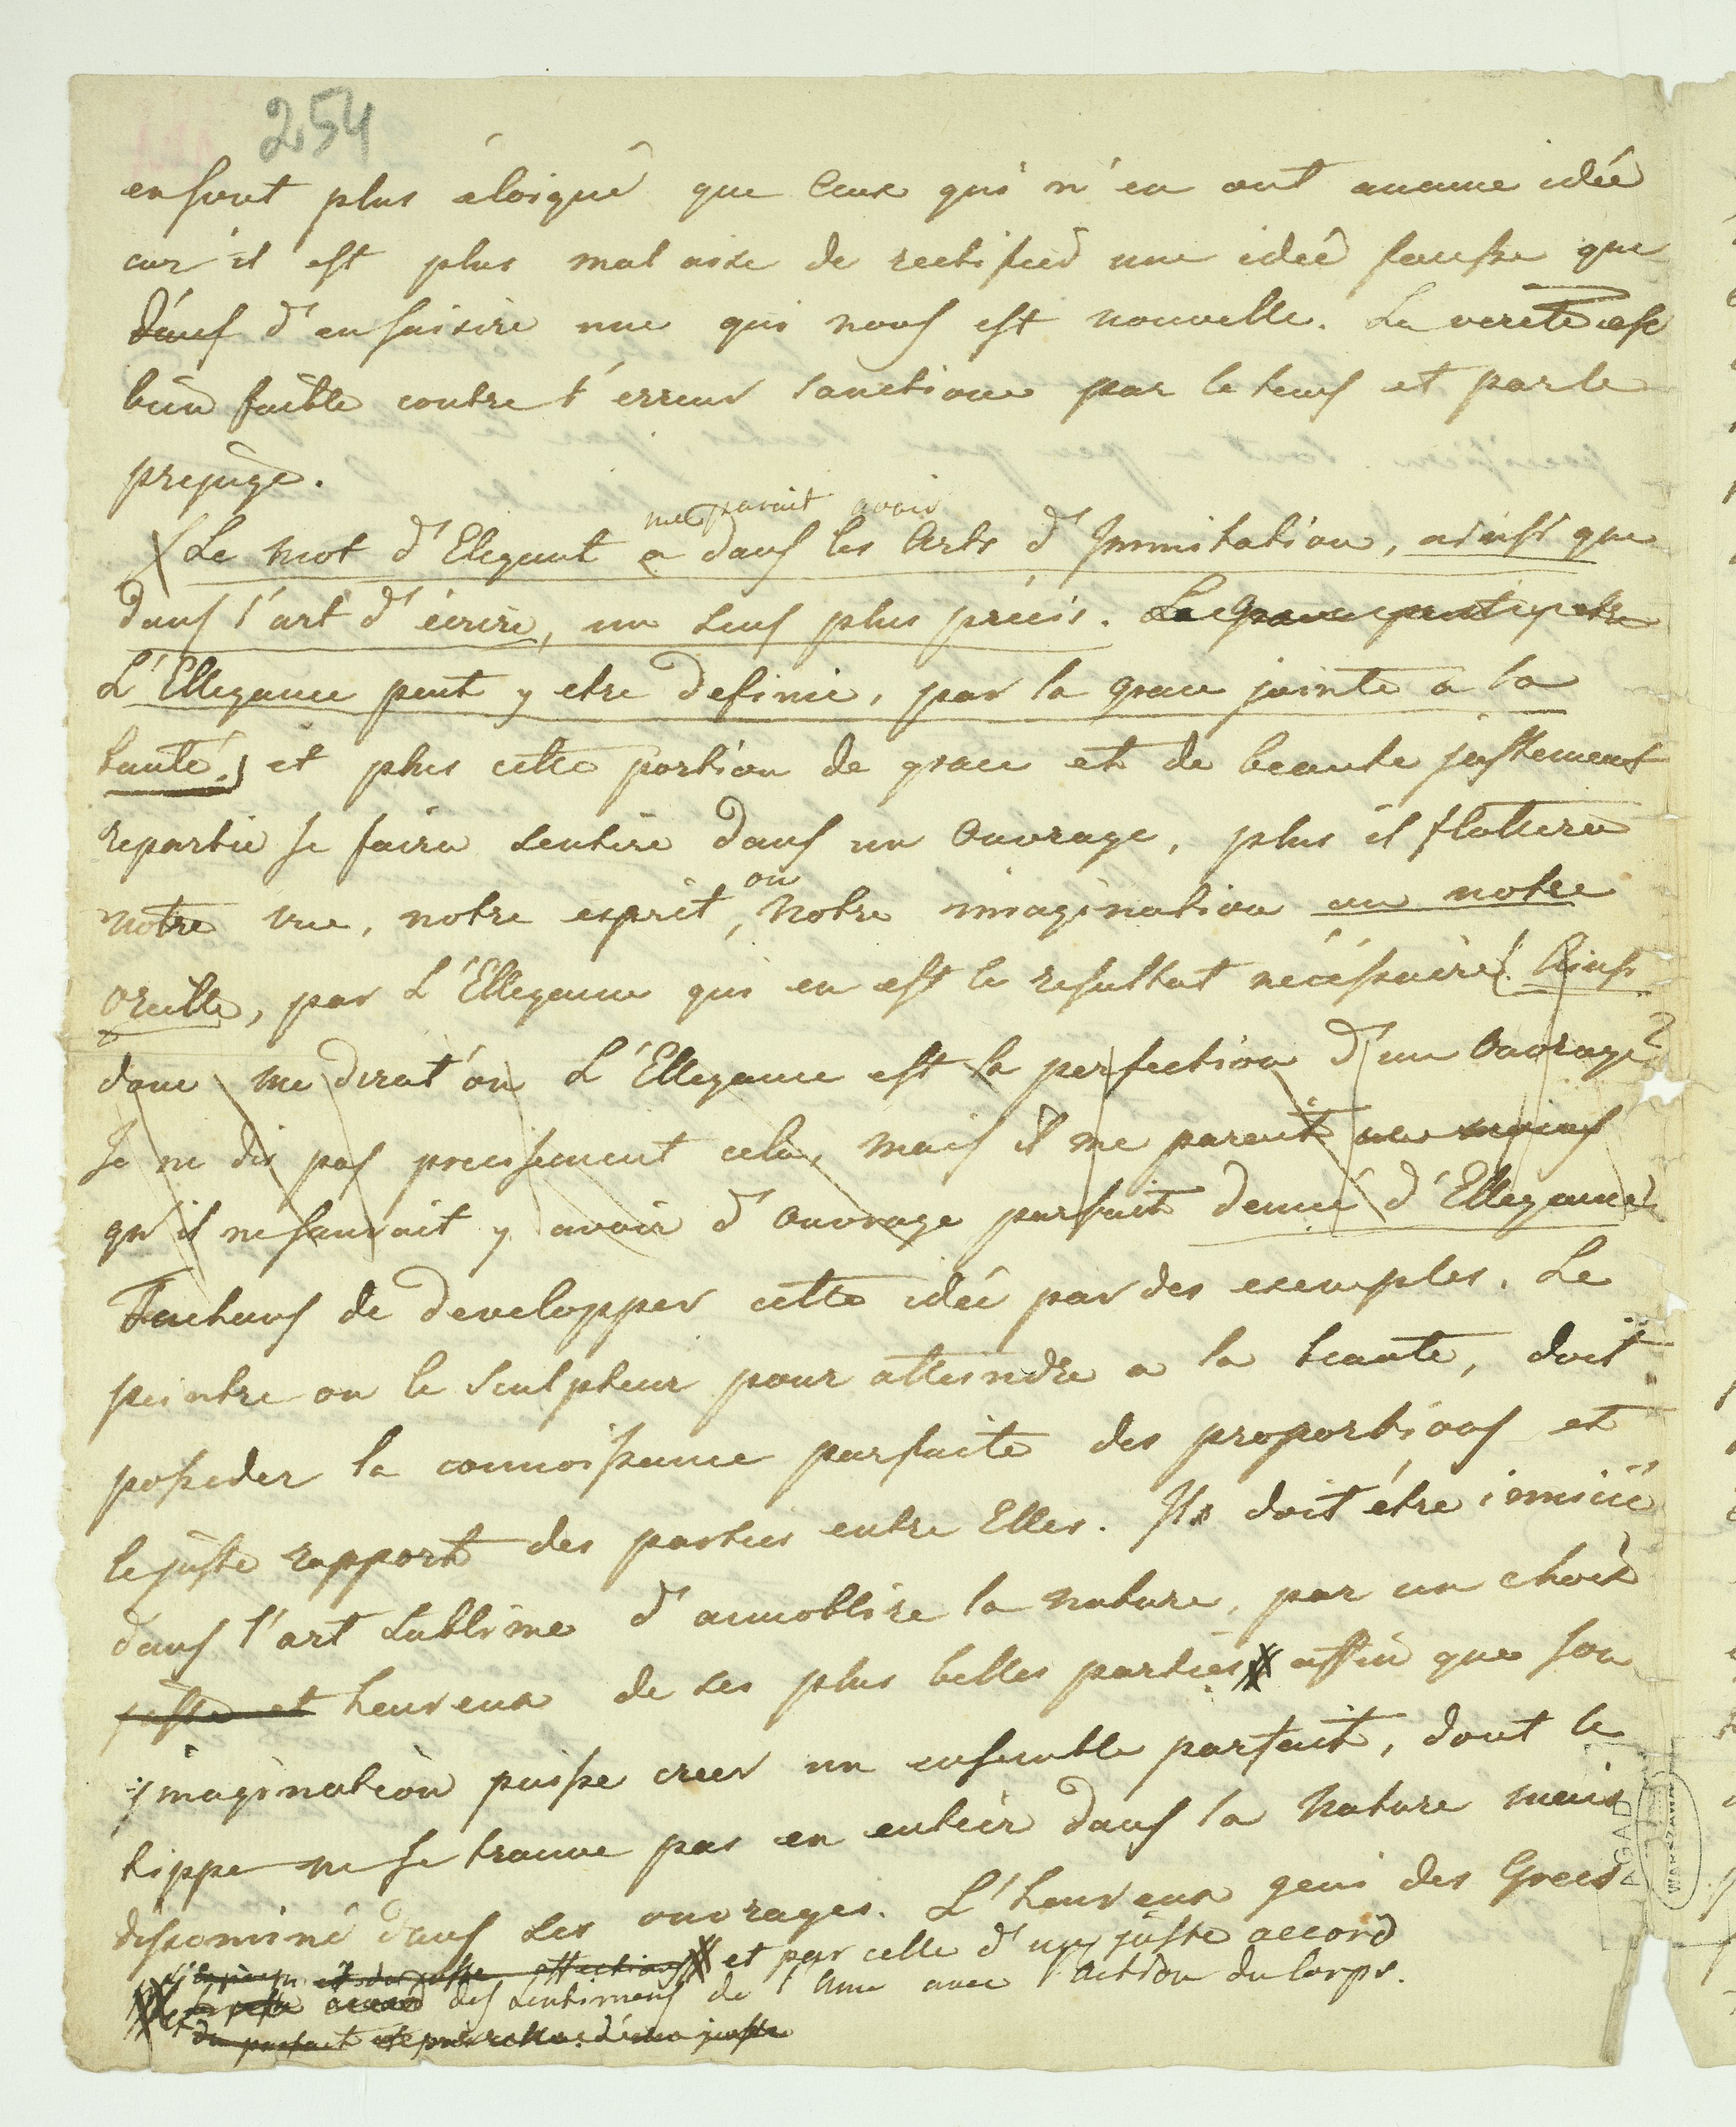 254
en sont plus éloigué que Ceux qui n'en ont aucune idée
car il est plus mal aise de rectifier une idée fausse que
d'ens d'en saisire une qui nous est nouvelle. La verité est
bien faible contre l'erreur sanctione par le tems et par le
prejugé.
me parait avoir
Le mot d'Elegant a dans les Arts d'Immitation, ainsi que
dans l'art d'écrire, un sens plus précis. La Grace peut y etre
L'Ellegance peut y etre definie, par la grace jointe a la
bauté. et plus cette portion de grace et de beaute justement
repartie se faira sentire dans un Ouvrage, plus il flattera
ou
notre vue, notre esprit, Notre imagination ou notre
oreille, par L'Ellegance qui en est le resultat nécéssaire. Ainsi
donc me dirat'on L'Ellegance est la perfection d'un Ouvrage?
Je ne dis pas precisement cela, mais il me parait au moins
qu'il ne saurait y avoir d'Ouvrage parfait denué d'Ellegance
Tachons de developper cette idée par des exemples. Le
peintre ou le Sculpteur pour atteindre a la beauté, doit
posseder la connoissance parfaite des proportions et
le juste rapport des parties entre Elles. Il doit être innicié
dans l'art sublime d'annoblire la nature, par un choix
juste et heureux de ses plus belles parties affin que son
imagination puisse creer un ensemble parfait, dont le
tippe ne se trouve pas en entier dans la Nature mais
disseminé dans ses ouvrages. L'heureux geni des Grecs
et par celle d'un juste accord
accord des sentimens de l'Ame avec l'action du Corps.
du parfait
AGAD
WARSZAWA